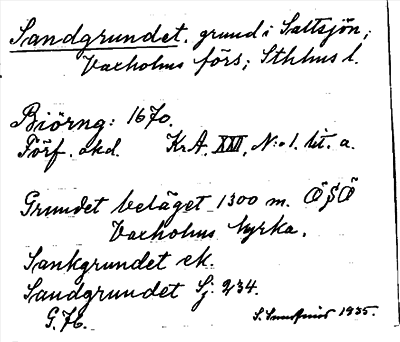 Sandgrundet, grund i Saltsjön,
Vaxholms förs; Sthlms l.
Biörng: 1670.
Förf. okd. Kr.A. XXII, N:o 1. lit. a.
Grundet beläget 1300 m. ÖSÖ
Vaxholms kyrka.
Sankgrundet ek.
Sandgrundet Sj: 234.
G. 76.
S. 1935.